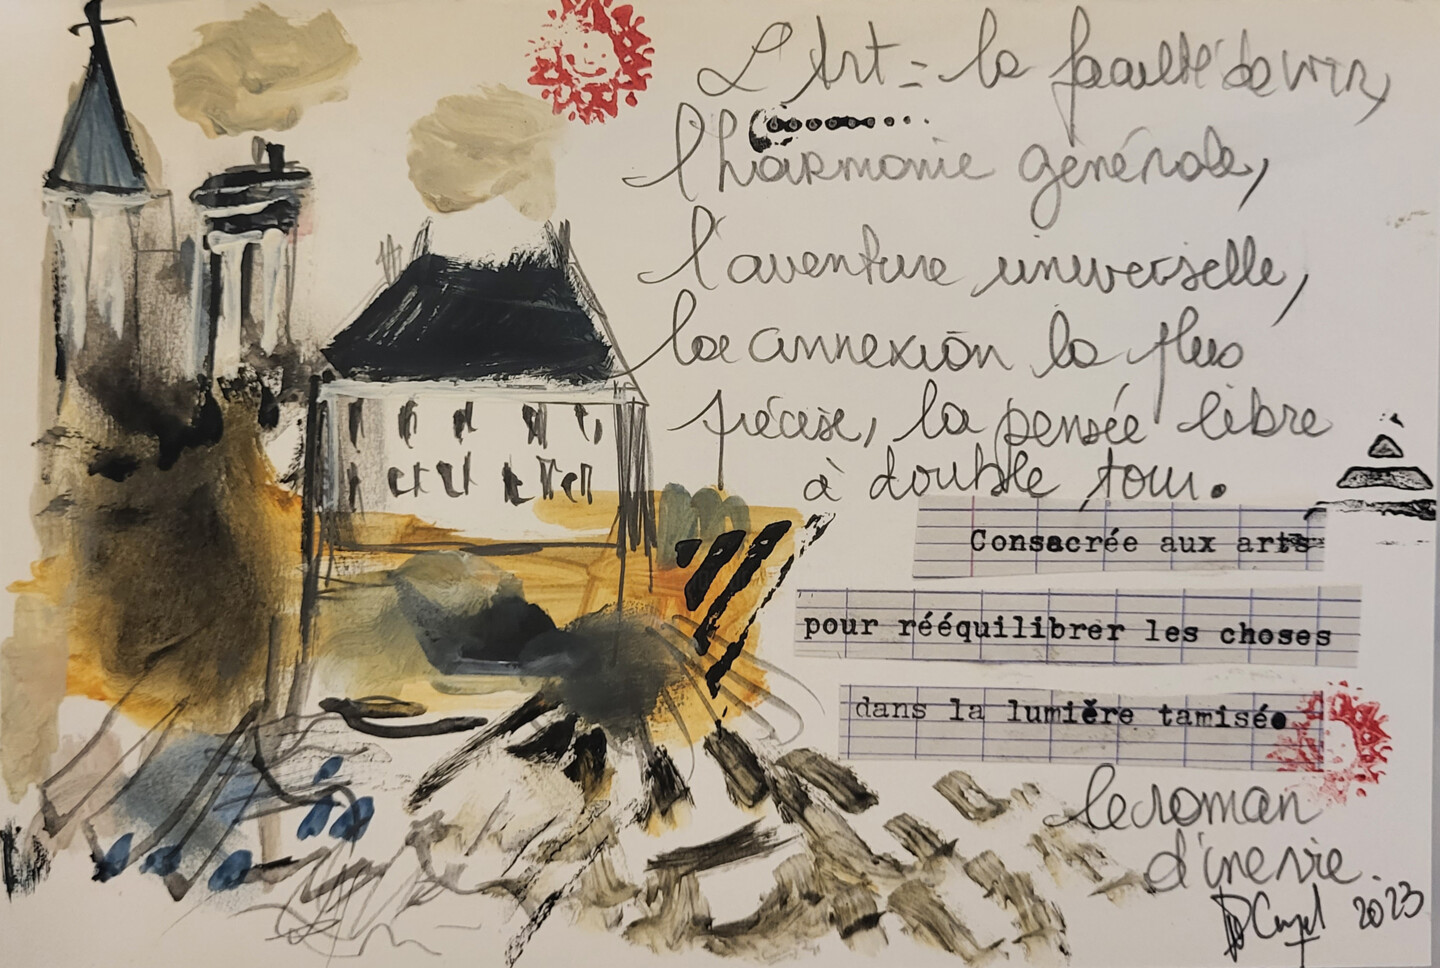 L'Art = la faculté de voir,
l'harmonie générale,
l'aventure universelle,
la connexion la plus
précise, la pensée libre
à double tour.
Consacrée aux arts
pour rééquilibrer les choses
dans la lumière tamisée
le roman
d'une vie.
2023